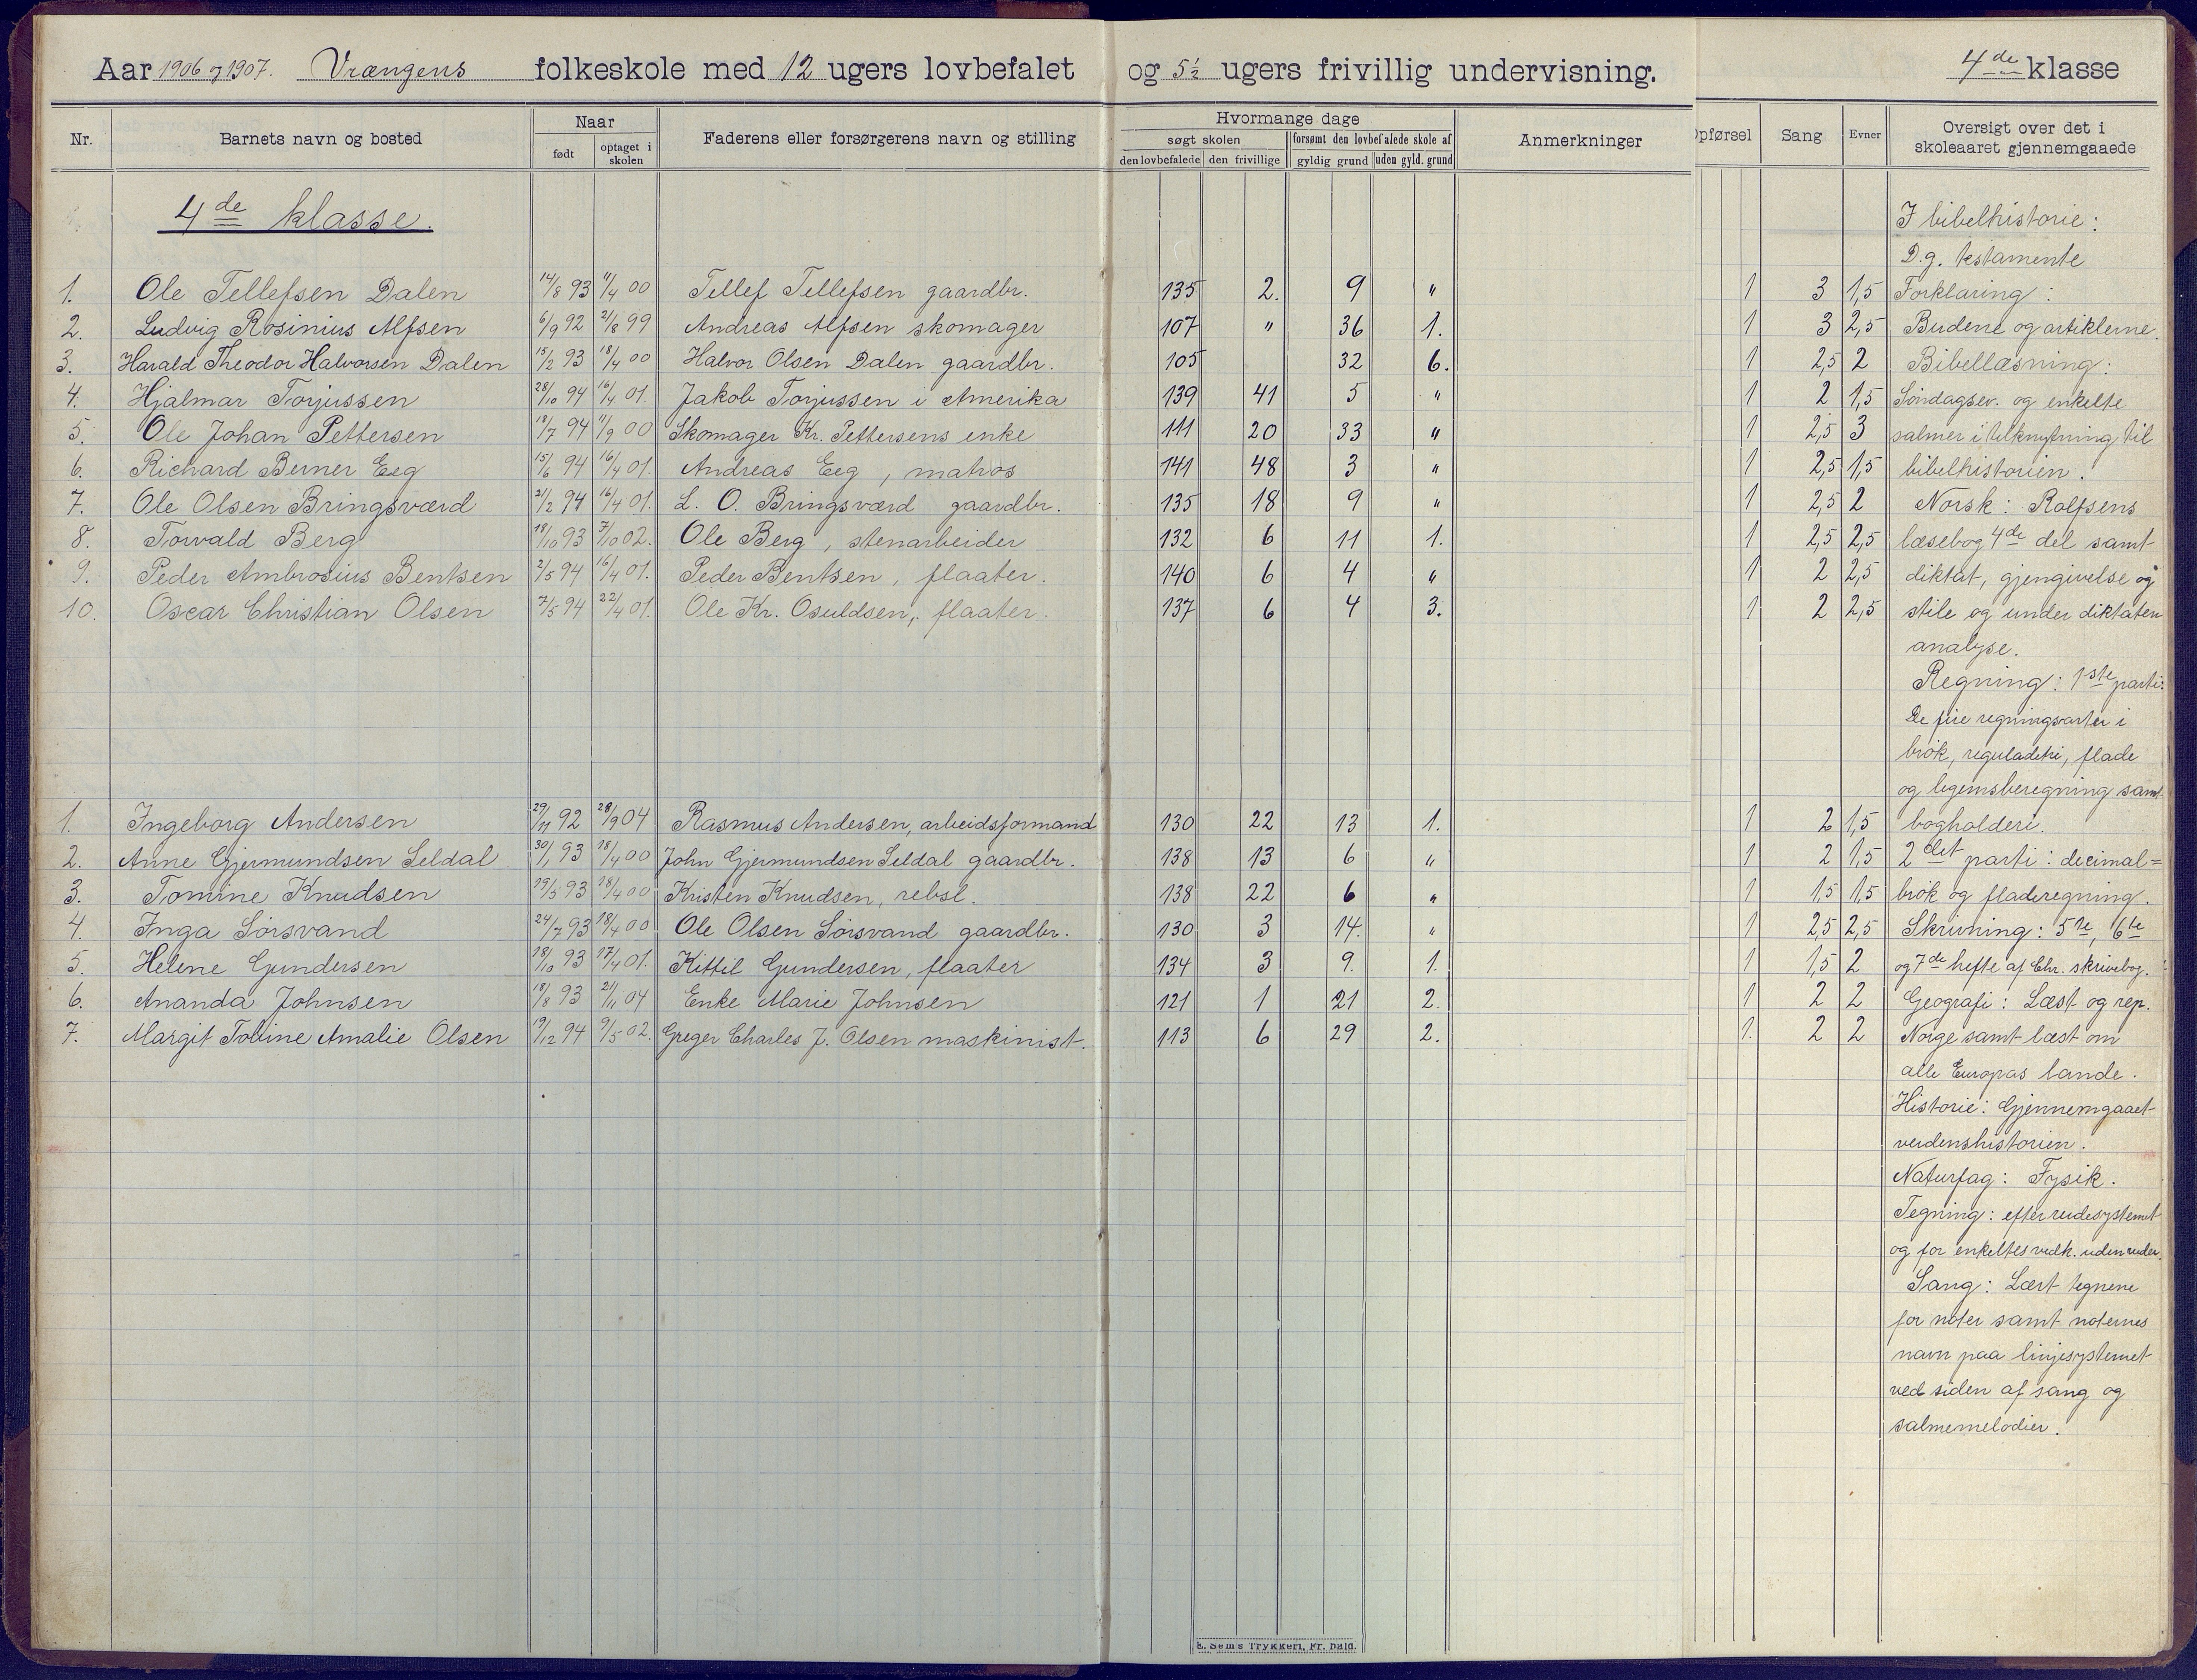 Aar 1906 og 1907. Vrængens folkeskole med 12 ugers lovbefalet og 5½ ugers frivillig undervisning. 4de klasse
Nr. Barnets navn og bosted Naar født optaget i skolen Faderens eller forsørgerens navn og stilling Hvormange dage søgt skolen den lovbefalede den frivillige forsømt den lovbefalede skole af gyldig grund uden gyld. grund Anmerkninger Opførsel Sang Evner Oversigt over det i skoleaaret gjennemgaaede
4de klasse.
1. Ole Tellefsen Dalen 14/8 93 11/4 00 Tellef Tellefsen gaardbr. 135 2. 9 " 1 3 1,5
2. Ludvig Rosinius Alfsen 6/9 92 21/8 99 Andreas Alfsen skomager 107 " 36 1. 1 3 2,5
3. Harald Theodor Halvorsen Dalen 15/2 93 18/4 00 Halvor Olsen Dalen gaardbr. 105 32 6. 1 2,5 2
4. Hjalmar Torjussen 28/10 94 16/4 01. Jakob Torjussen i Amerika 139 41 5 " 1 2 1,5
5. Ole Johan Pettersen 18/7 94 11/9 00 Skomager Kr. Pettersens enke 111 20 33 " 1 2,5 3
6. Richard Berner Eeg 15/6 94 16/4 01. Andreas Eeg, matros 141 48 3 " 1 2,5 1,5
7. Ole Olsen Bringsværd 21/2 94 16/4 01. L. O. Bringsværd gaardbr. 135 18 9 " 1 2,5 2
8. Torvald Berg 18/10 93 7/10 02. Ole Berg, stenarbeider 132 6 11 1. 1 2,5 2,5
9. Peder Ambrosius Bentsen 2/5 94 16/4 01. Peder Bentsen, flaater. 140 6 4 " 1 2 2,5
10. Oscar Christian Olsen 7/5 94 22/4 01. Ole Kr. Osuldsen, flaater. 137 6 4 3. 1 2 2,5
1. Ingeborg Andersen 29/11 92 28/9 04 Rasmus Andersen, arbeidsformand 130 22 13 1. 1 2 1,5
2. Anne Gjermundsen Seldal 30/1 93 18/4 00 John Gjermundsen Seldal gaardbr. 138 13 6 " 1 2 1,5
3. Tomine Knudsen 19/5 93 18/4 00 Kristen Knudsen, rebsl. 138 22 6 " 1 1,5 1,5
4. Inga Sörsvand 24/7 93 18/4 00 Ole Olsen Sörsvand gaardbr. 130 3 14. " 1 2,5 2,5
5. Helene Gundersen 18/10 93 17/4 01. Kittil Gundersen, flaater 134 3 9. 1. 1 1,5 2
6. Ananda Johnsen 18/8 93 21/11 04 Enke Marie Johnsen 121 1 21 2. 1 2 2
7. Margit Tobine Amalie Olsen 19/12 94 9/5 02. Greger Charles J. Olsen maskinist. 113 6 29 2. 1. 2 2
I bibelhistorie:
D. g. testamente
Forklaring:
Budene og artiklerne.
Bibellæsning:
Söndagsev. og enkelte
salmer i tilknytning til
bibelhistorien.
Norsk: Rolfsens
læsebog 4de del samt
diktat, gjengivelse og
stile og under diktaten
analyse.
Regning: 1ste parti:
De fire regningsarter i
brök, reguladetri, flade
og legemsberegning samt
bogholderi.
2det parti: decimal=
brök og fladeregning.
Skrivning: 5te, 6te
og 7de hefte af Chr. skrivebog.
Geografi: Læst og rep.
Norge samt læst om
alle Europas lande.
Historie: Gjennemgaaet
verdenshistorien.
Naturfag: Fysik.
Tegning: efter rudesystemet
og for enkeltes vedk. uden ruder.
Sang: Lært tegnene
for noter samt noternes
navn paa linjesystemet
ved siden af sang og
salmemelodier.
E. Sem's Trykkeri, Fr.hald.